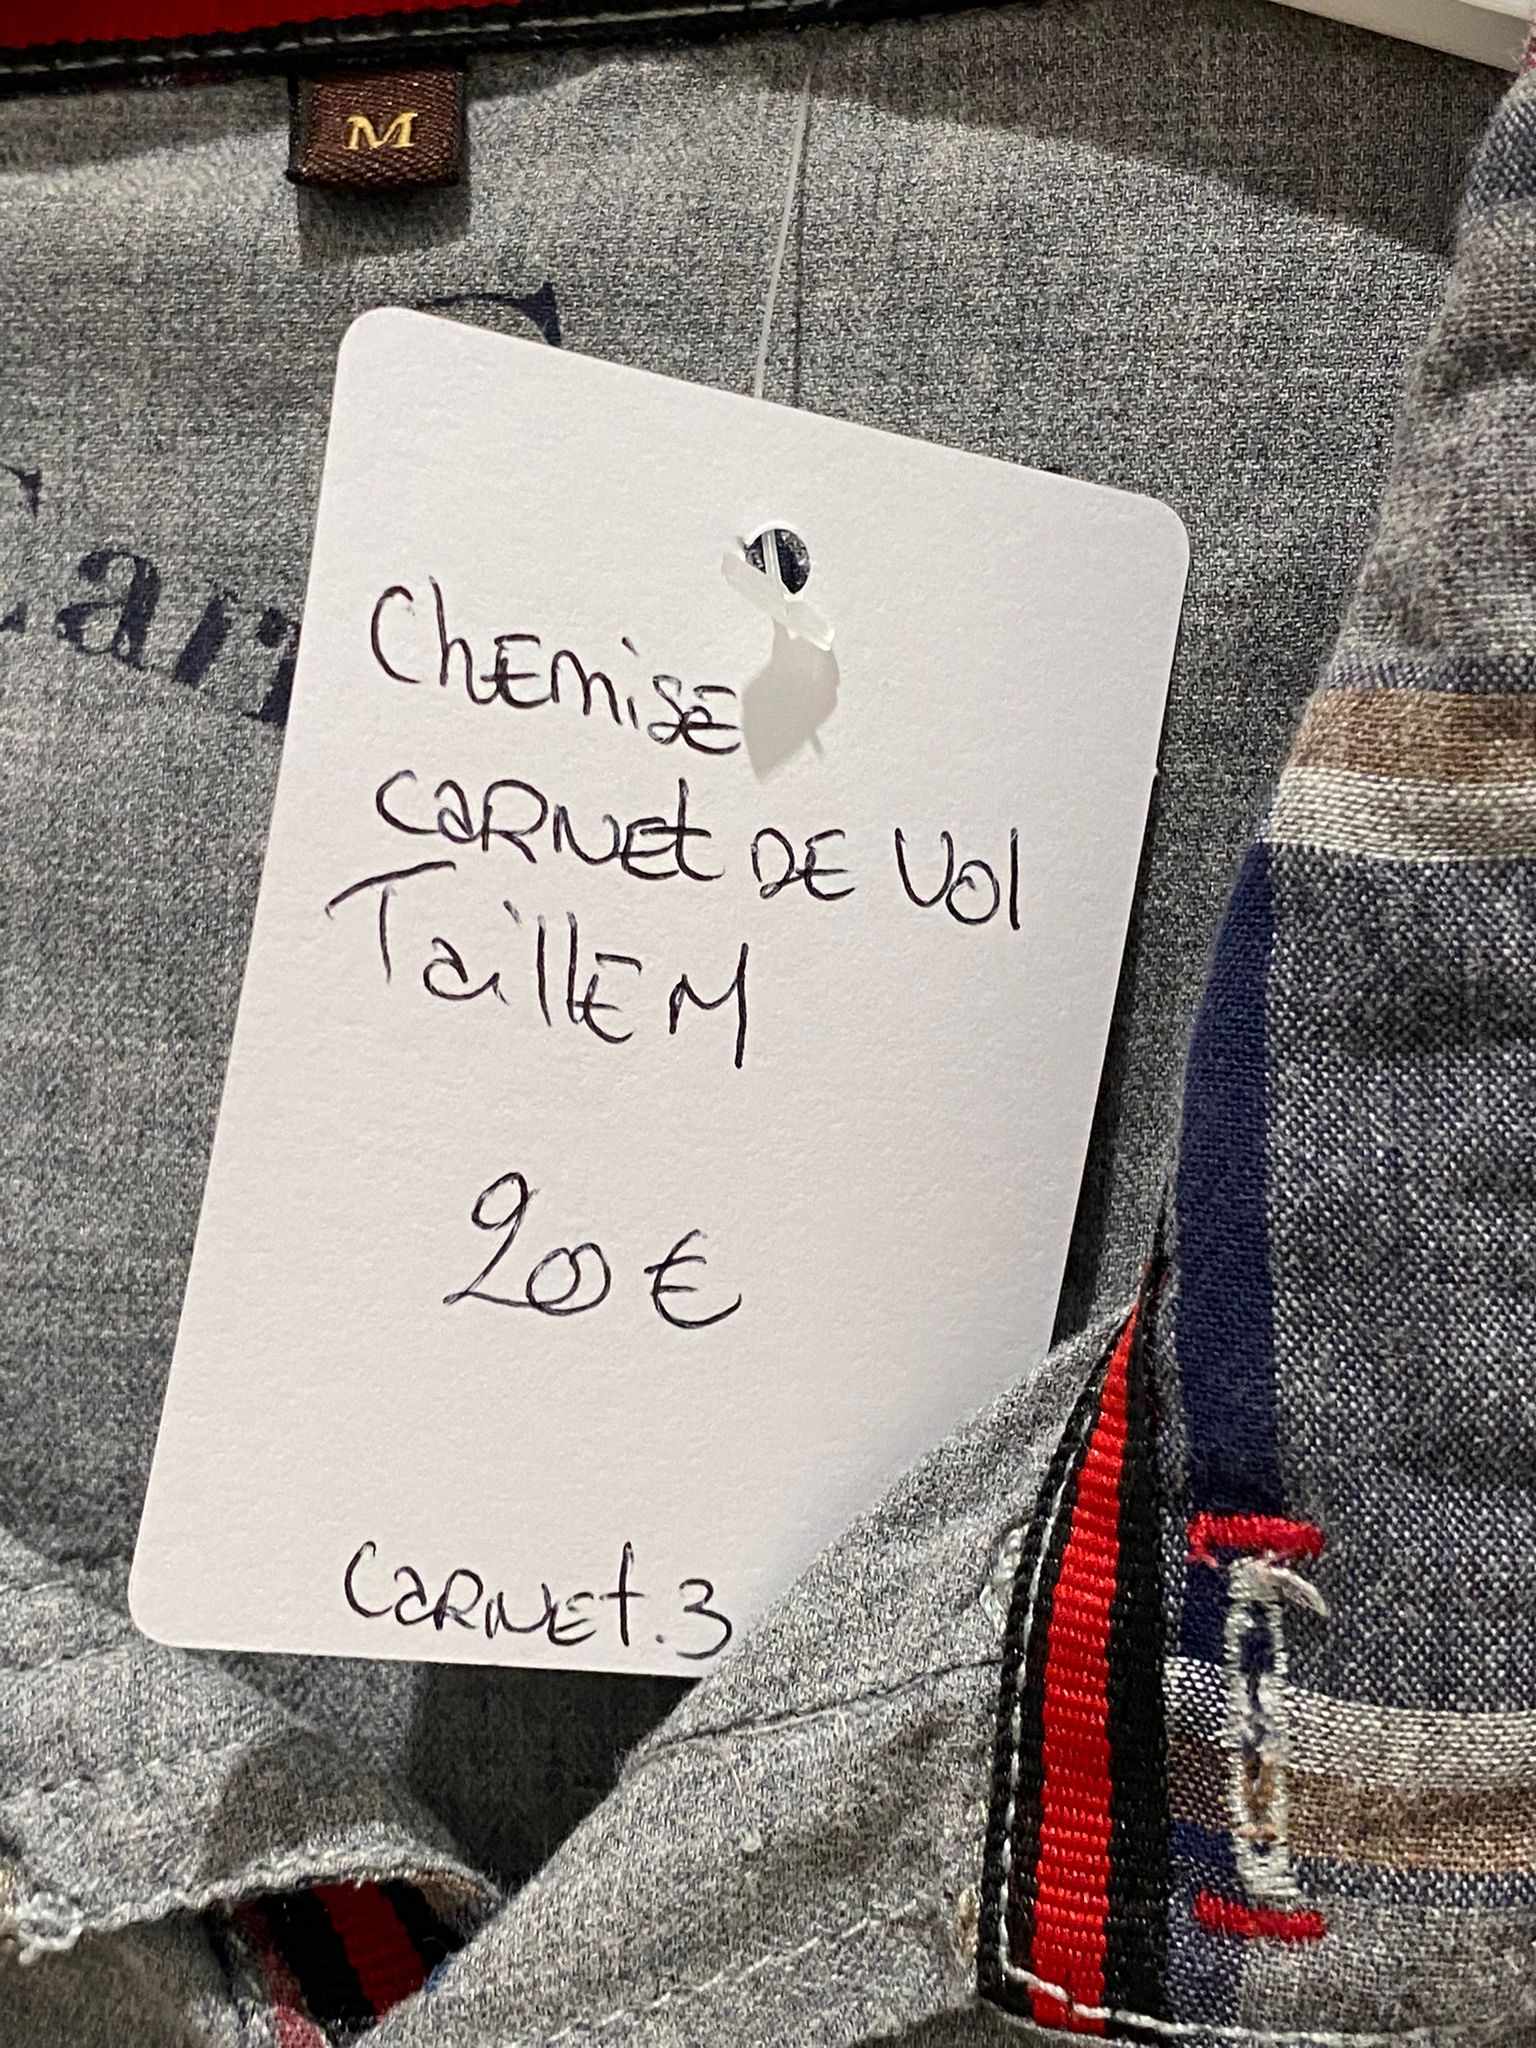 M
Chemise
Carnet de vol
Taille M
200 €
Carnet.3